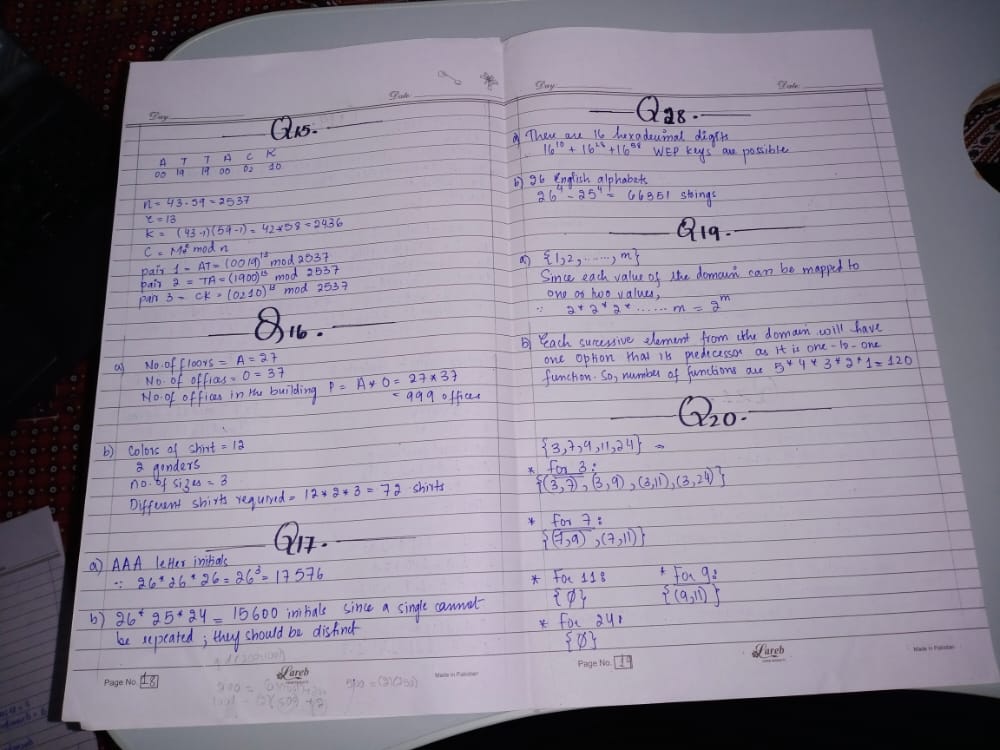 Day
Date
Q15.
A T T A C K
00 19 19 00 02 10
n = 43.59 = 2537
e = 13
K = (43-1)(59-1) = 42*58 = 2436
C = Mᵉ mod n
pair 1 - AT = (0019)¹³ mod 2537
pair 2 = TA = (1900)¹³ mod 2537
pair 3 - CK = (0210)¹³ mod 2537
Q16.
a) No. of floors = A = 27
No. of offices = O = 37
No. of offices in the building P = A*O = 27*37
= 999 offices
b) Colors of shirt = 12
2 genders
no. of sizes = 3
Different shirts required = 12*2*3 = 72 shirts
Q17.
a) AAA letter initials
∵ 26*26*26 = 26³ = 17576
b) 26*25*24 = 15600 initials since a single cannot
be repeated ; they should be distinct
Page No. 18
Lareb
Made in Pakistan
Day
Date
Q28.
a) There are 16 hexadecimal digits
16¹⁰ + 16²⁶ + 16⁵⁸ WEP keys are possible
b) 26 English alphabets
26⁴ - 25⁴ = 66351 strings
Q19.
a) {1,2,......,m}
Since each value of the domain can be mapped to
one or two values,
∵ 2*2*2*...... m = 2ᵐ
b) Each sucessive element from the domain will have
one option that its predecessor as it is one-to-one
function. So, number of functions are 5*4*3*2*1 = 120
Q20.
{3,7,9,11,24}
* for 3:
{(3,7),(3,9),(3,11),(3,24)}
* for 7:
{(7,9),(7,11)}
* For 11:
{∅}
* For 9:
{(9,11)}
* for 24:
{∅}
Page No. 19
Lareb
Made in Pakistan